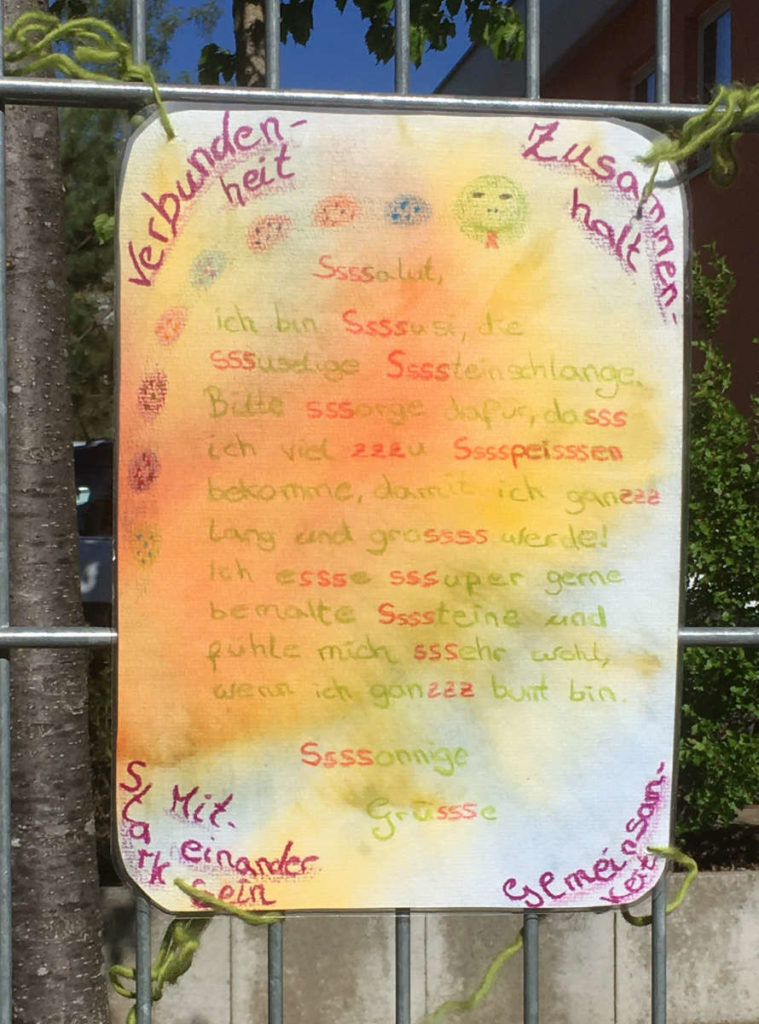 Verbunden-
heit
Zusammen-
halt
Ssssalut,
ich bin Ssssusi, die
sssuselige Ssssteinschlange.
Bitte sssorge dafür, dasss
ich viel zzzu Sssspeisssen
bekomme, damit ich ganzzz
lang und grossss werde!
Ich essse sssuper gerne
bemalte Ssssteine und
fühle mich sssehr wohl,
wenn ich ganzzz bunt bin.
Ssssonnige
Grüssse
Stark
Mit-
einander
sein
Gemeinsam-
keit